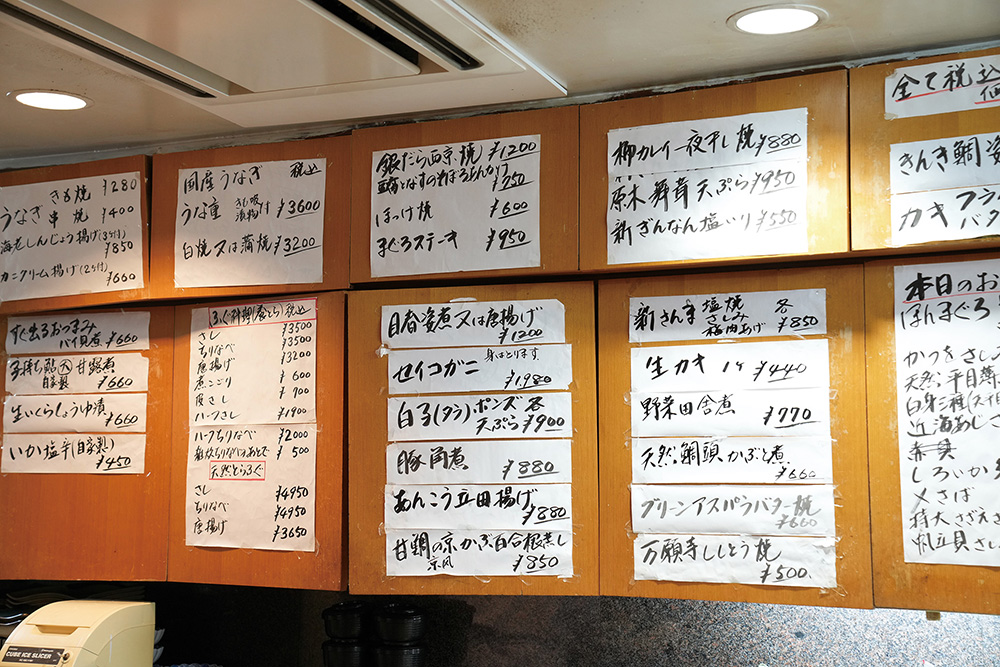 きも焼 ¥280
うなぎ串焼 ¥400
海老しんじょう揚げ(3ヶ付) ¥850
カニクリーム揚げ(2ヶ付) ¥660
国産うなぎ 税込
うな重 きも吸 漬物付 ¥3600
白焼又は蒲焼 ¥3200
銀だら西京焼 ¥1200
¥750
ほっけ焼 ¥600
まぐろステーキ ¥950
柳カレイ一夜干し焼 ¥880
原木舞茸天ぷら ¥950
新ぎんなん塩いり ¥550
全て税込
きんき鯛姿
カキフラ
バタ
すぐ出るおつまみ
バイ貝煮 ¥660
子持ち鮎 甘露煮
自家製 ¥660
生いくらしょうゆ漬 ¥660
いか塩辛(自家製) ¥450
ふぐ料理(養とら)税込
さし ¥3500
ちりなべ ¥3500
唐揚げ ¥3200
煮こごり ¥600
皮さし ¥900
ハーフさし ¥1900
ハーフちりなべ ¥2000
雑炊ちりなべのあとで ¥500
天然とらふぐ
さし ¥4950
ちりなべ ¥4950
唐揚げ ¥3650
目春姿煮又は唐揚げ
¥1200
セイコガニ 身はとります
¥1,980
白子(タラ)ポンズ 各
天ぷら ¥900
豚角煮 ¥880
あんこう立田揚げ
¥880
甘鯛の京かぶ百合根蒸し
京風 ¥850
新さんま 塩焼 さしみ 梅肉あげ 各 ¥850
生カキ 1ケ ¥440
野菜田舎煮 ¥770
天然鯛頭かぶと煮
¥660
グリーンアスパラバター焼
¥660
万願寺ししとう焼
¥500.
本日のお
ほんまぐろ
かつをさし
天然平目薄
白身三種
近海あじさ
しろいか
〆さば
特大さざえさ
帆立貝さし
CUBE ICE SLICER